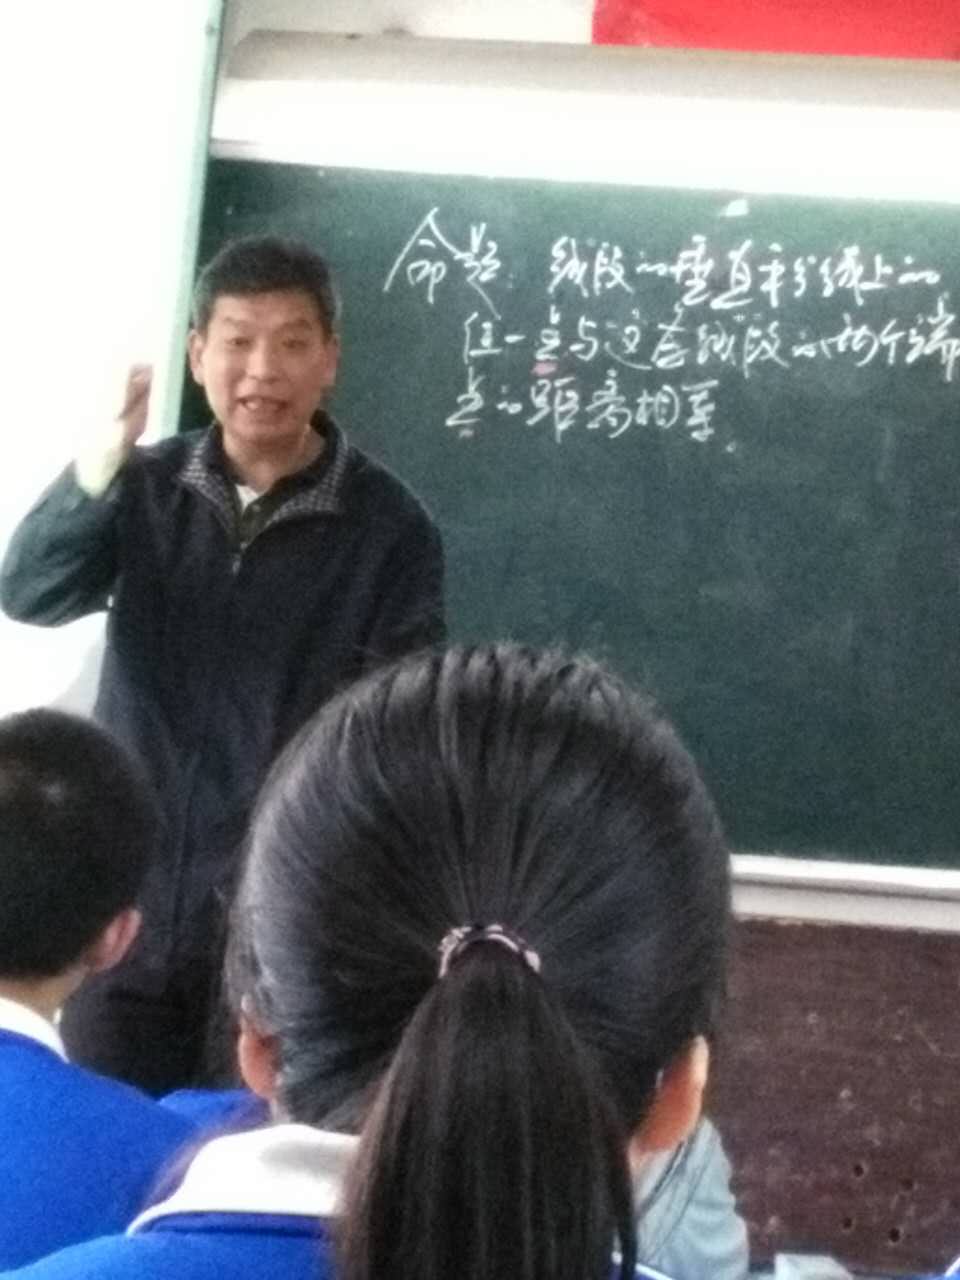 命题:线段的垂直平分线上的
任一点与这条线段的两个端
点的距离相等。